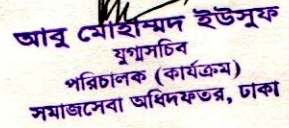 আবু মোহাম্মদ ইউসুফ
যুগ্মসচিব
পরিচালক (কার্যক্রম)
সমাজসেবা অধিদফতর, ঢাকা